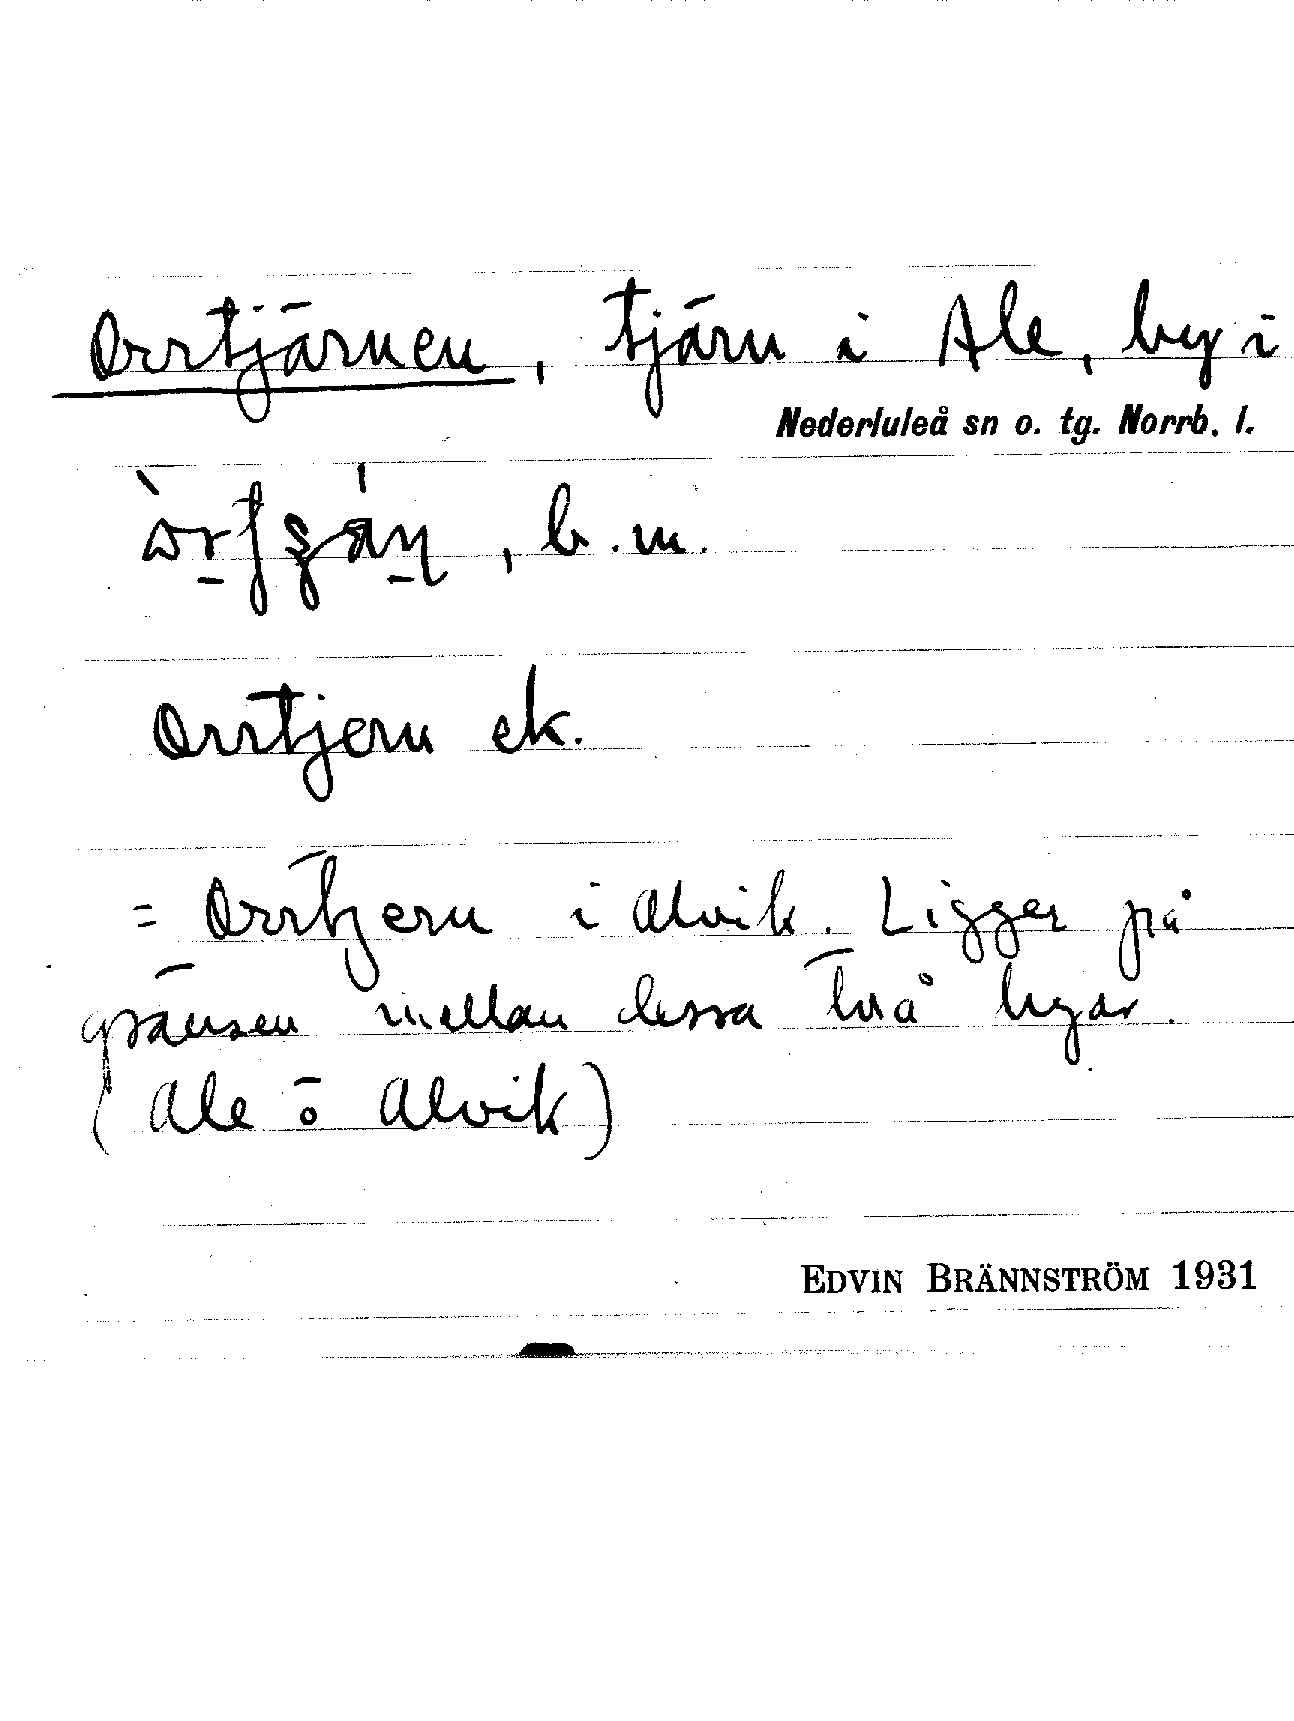 Orrtjärnen, tjärn i Ale, by i
Nederluleå sn o. tg. Norrb. l.
, b. m.
Orrtjern ek.
= Orrtjern i Alvik. Ligger på
gränsen mellan dessa två byar.
(Ale o Alvik)
EDVIN BRÄNNSTRÖM 1931